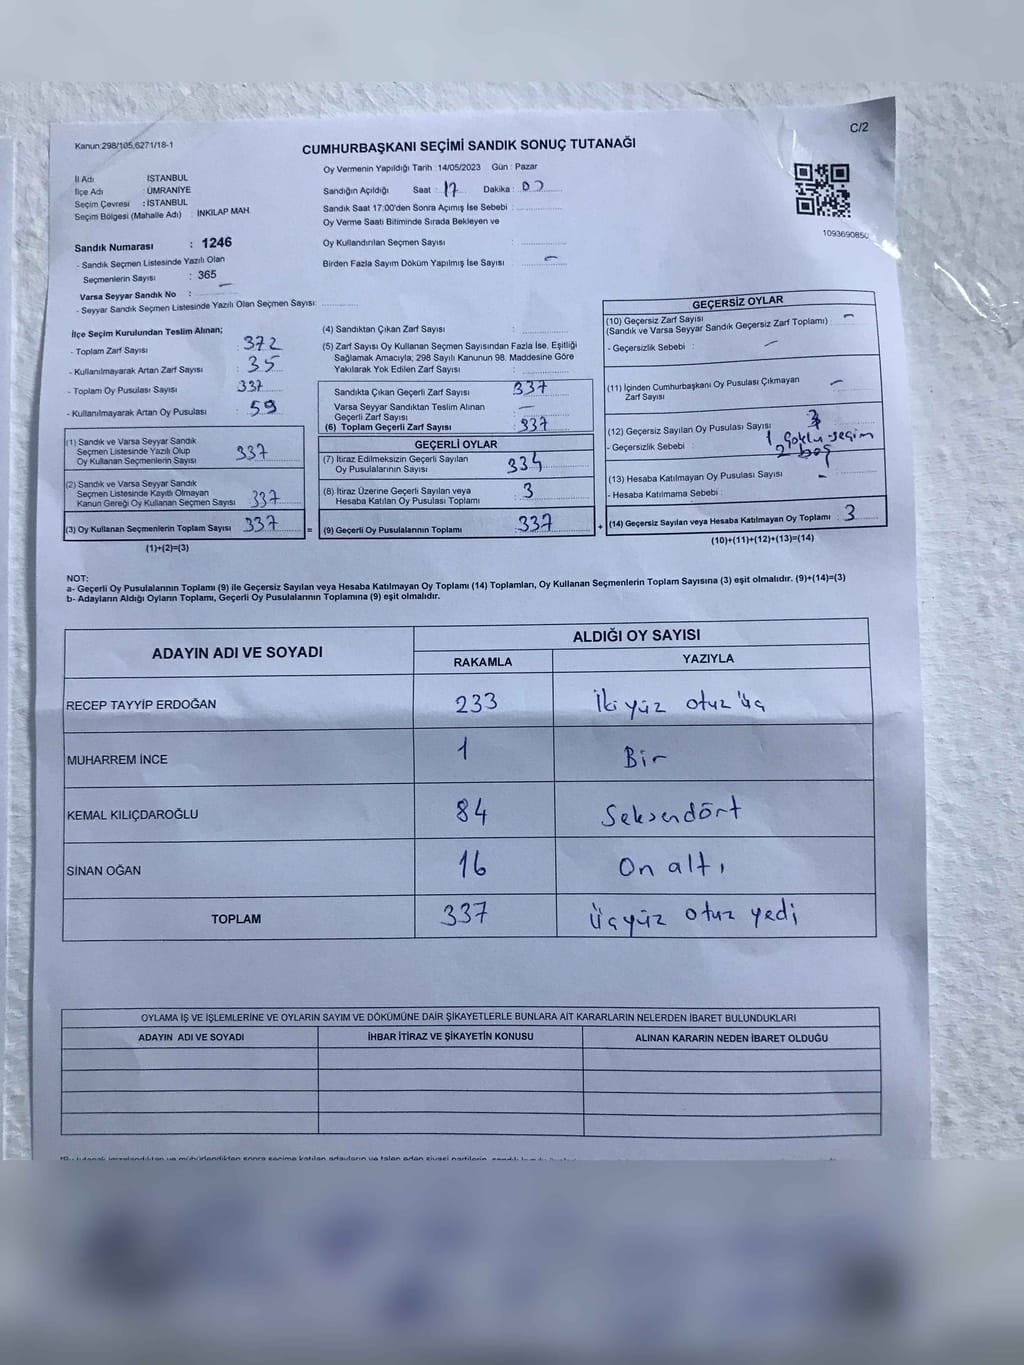 Kanun:298/105,6271/18-1
C/2
CUMHURBAŞKANI SEÇİMİ SANDIK SONUÇ TUTANAĞI
İl Adı : İSTANBUL
İlçe Adı : ÜMRANİYE
Seçim Çevresi : İSTANBUL
Seçim Bölgesi (Mahalle Adı) : INKILAP MAH
Sandık Numarası : 1246
- Sandık Seçmen Listesinde Yazılı Olan
Seçmenlerin Sayısı : 365
Varsa Seyyar Sandık No : -
- Seyyar Sandık Seçmen Listesinde Yazılı Olan Seçmen Sayısı:
Oy Vermenin Yapıldığı Tarih :14/05/2023 Gün : Pazar
Sandığın Açıldığı Saat : 17 Dakika : 00
Sandık Saat 17:00'den Sonra Açımış İse Sebebi :
Oy Verme Saati Bitiminde Sırada Bekleyen ve
Oy Kullandırılan Seçmen Sayısı :
Birden Fazla Sayım Döküm Yapılmış İse Sayısı : -
1093690850
İlçe Seçim Kurulundan Teslim Alınan;
- Toplam Zarf Sayısı : 372
- Kullanılmayarak Artan Zarf Sayısı : 35
- Toplam Oy Pusulası Sayısı : 337
- Kullanılmayarak Artan Oy Pusulası : 59
(1) Sandık ve Varsa Seyyar Sandık
Seçmen Listesinde Yazılı Olup
Oy Kullanan Seçmenlerin Sayısı : 337
(2) Sandık ve Varsa Seyyar Sandık
Seçmen Listesinde Kayıtlı Olmayan
Kanun Gereği Oy Kullanan Seçmen Sayısı : 337
(3) Oy Kullanan Seçmenlerin Toplam Sayısı : 337
(1)+(2)=(3)
=
(4) Sandıktan Çıkan Zarf Sayısı :
(5) Zarf Sayısı Oy Kullanan Seçmen Sayısından Fazla İse, Eşitliği
Sağlamak Amacıyla; 298 Sayılı Kanunun 98. Maddesine Göre
Yakılarak Yok Edilen Zarf Sayısı :
Sandıkta Çıkan Geçerli Zarf Sayısı : 337
Varsa Seyyar Sandıktan Teslim Alınan
Geçerli Zarf Sayısı : -
(6) Toplam Geçerli Zarf Sayısı : 337
GEÇERLİ OYLAR
(7) İtiraz Edilmeksizin Geçerli Sayılan
Oy Pusulalarının Sayısı : 334
(8) İtiraz Üzerine Geçerli Sayılan veya
Hesaba Katılan Oy Pusulası Toplamı : 3
(9) Geçerli Oy Pusulalarının Toplamı : 337
+
GEÇERSİZ OYLAR
(10) Geçersiz Zarf Sayısı : -
(Sandık ve Varsa Seyyar Sandık Geçersiz Zarf Toplamı)
- Geçersizlik Sebebi : -
(11) İçinden Cumhurbaşkanı Oy Pusulası Çıkmayan
Zarf Sayısı : -
(12) Geçersiz Sayılan Oy Pusulası Sayısı : 3
- Geçersizlik Sebebi : 1 Çoklu seçim
2 boş
(13) Hesaba Katılmayan Oy Pusulası Sayısı : -
- Hesaba Katılmama Sebebi :
(14) Geçersiz Sayılan veya Hesaba Katılmayan Oy Toplamı : 3
(10)+(11)+(12)+(13)=(14)
NOT:
a- Geçerli Oy Pusulalarının Toplamı (9) ile Geçersiz Sayılan veya Hesaba Katılmayan Oy Toplamı (14) Toplamları, Oy Kullanan Seçmenlerin Toplam Sayısına (3) eşit olmalıdır. (9)+(14)=(3)
b- Adayların Aldığı Oyların Toplamı, Geçerli Oy Pusulalarının Toplamına (9) eşit olmalıdır.
ADAYIN ADI VE SOYADI ALDIĞI OY SAYISI
RAKAMLA YAZIYLA
RECEP TAYYİP ERDOĞAN 233 İki yüz otuz üç
MUHARREM İNCE 1 Bir
KEMAL KILIÇDAROĞLU 84 Seksendört
SİNAN OĞAN 16 On altı
TOPLAM 337 Üçyüz otuz yedi
OYLAMA İŞ VE İŞLEMLERİNE VE OYLARIN SAYIM VE DÖKÜMÜNE DAİR ŞİKAYETLERLE BUNLARA AİT KARARLARIN NELERDEN İBARET BULUNDUKLARI
ADAYIN ADI VE SOYADI İHBAR İTİRAZ VE ŞİKAYETİN KONUSU ALINAN KARARIN NEDEN İBARET OLDUĞU